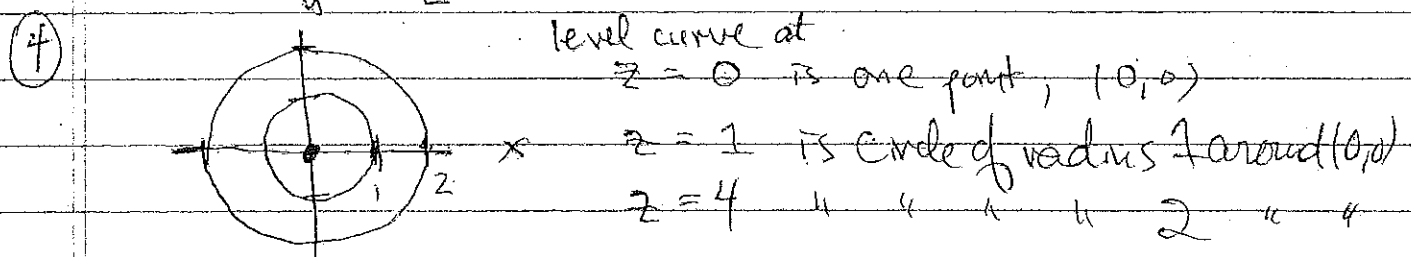 ④
level curve at
z = 0 is one point, (0,0)
x z = 1 is circle of radius 1 around (0,0)
1 2 z = 4 " " " " 2 " "